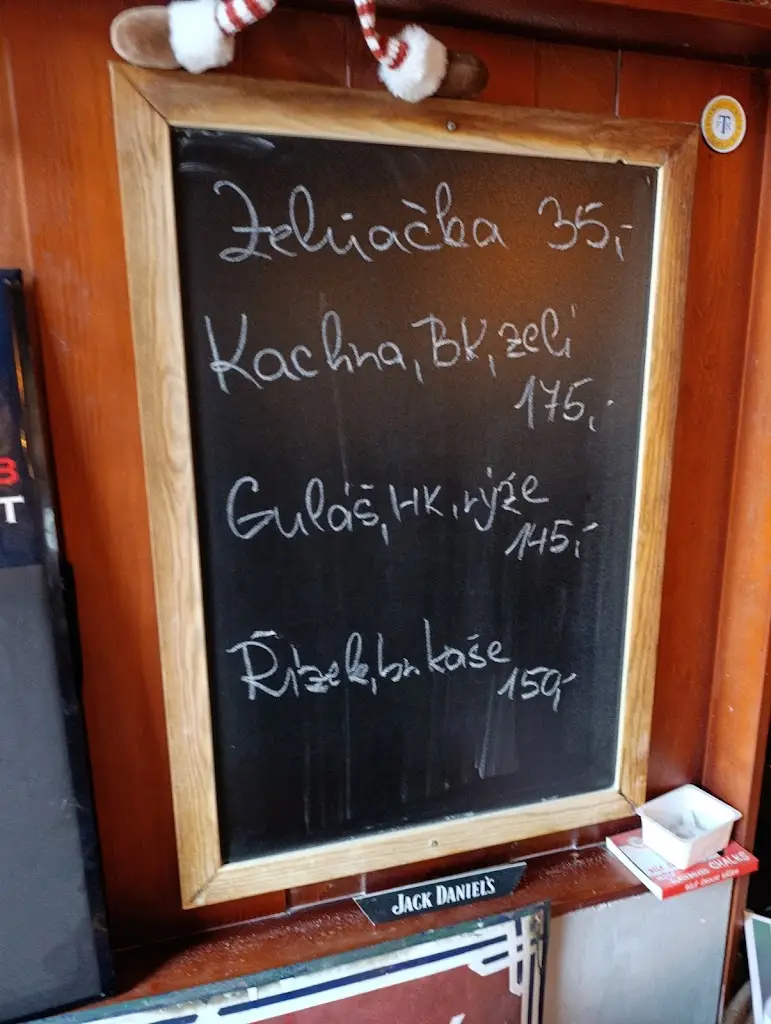 Zelňačka 35,-
Kachna, BK, zelí
175,-
Guláš, HK, rýže
145,-
Řízek, br. kaše
159,-
JACK DANIEL'S
CHALKS
B
T